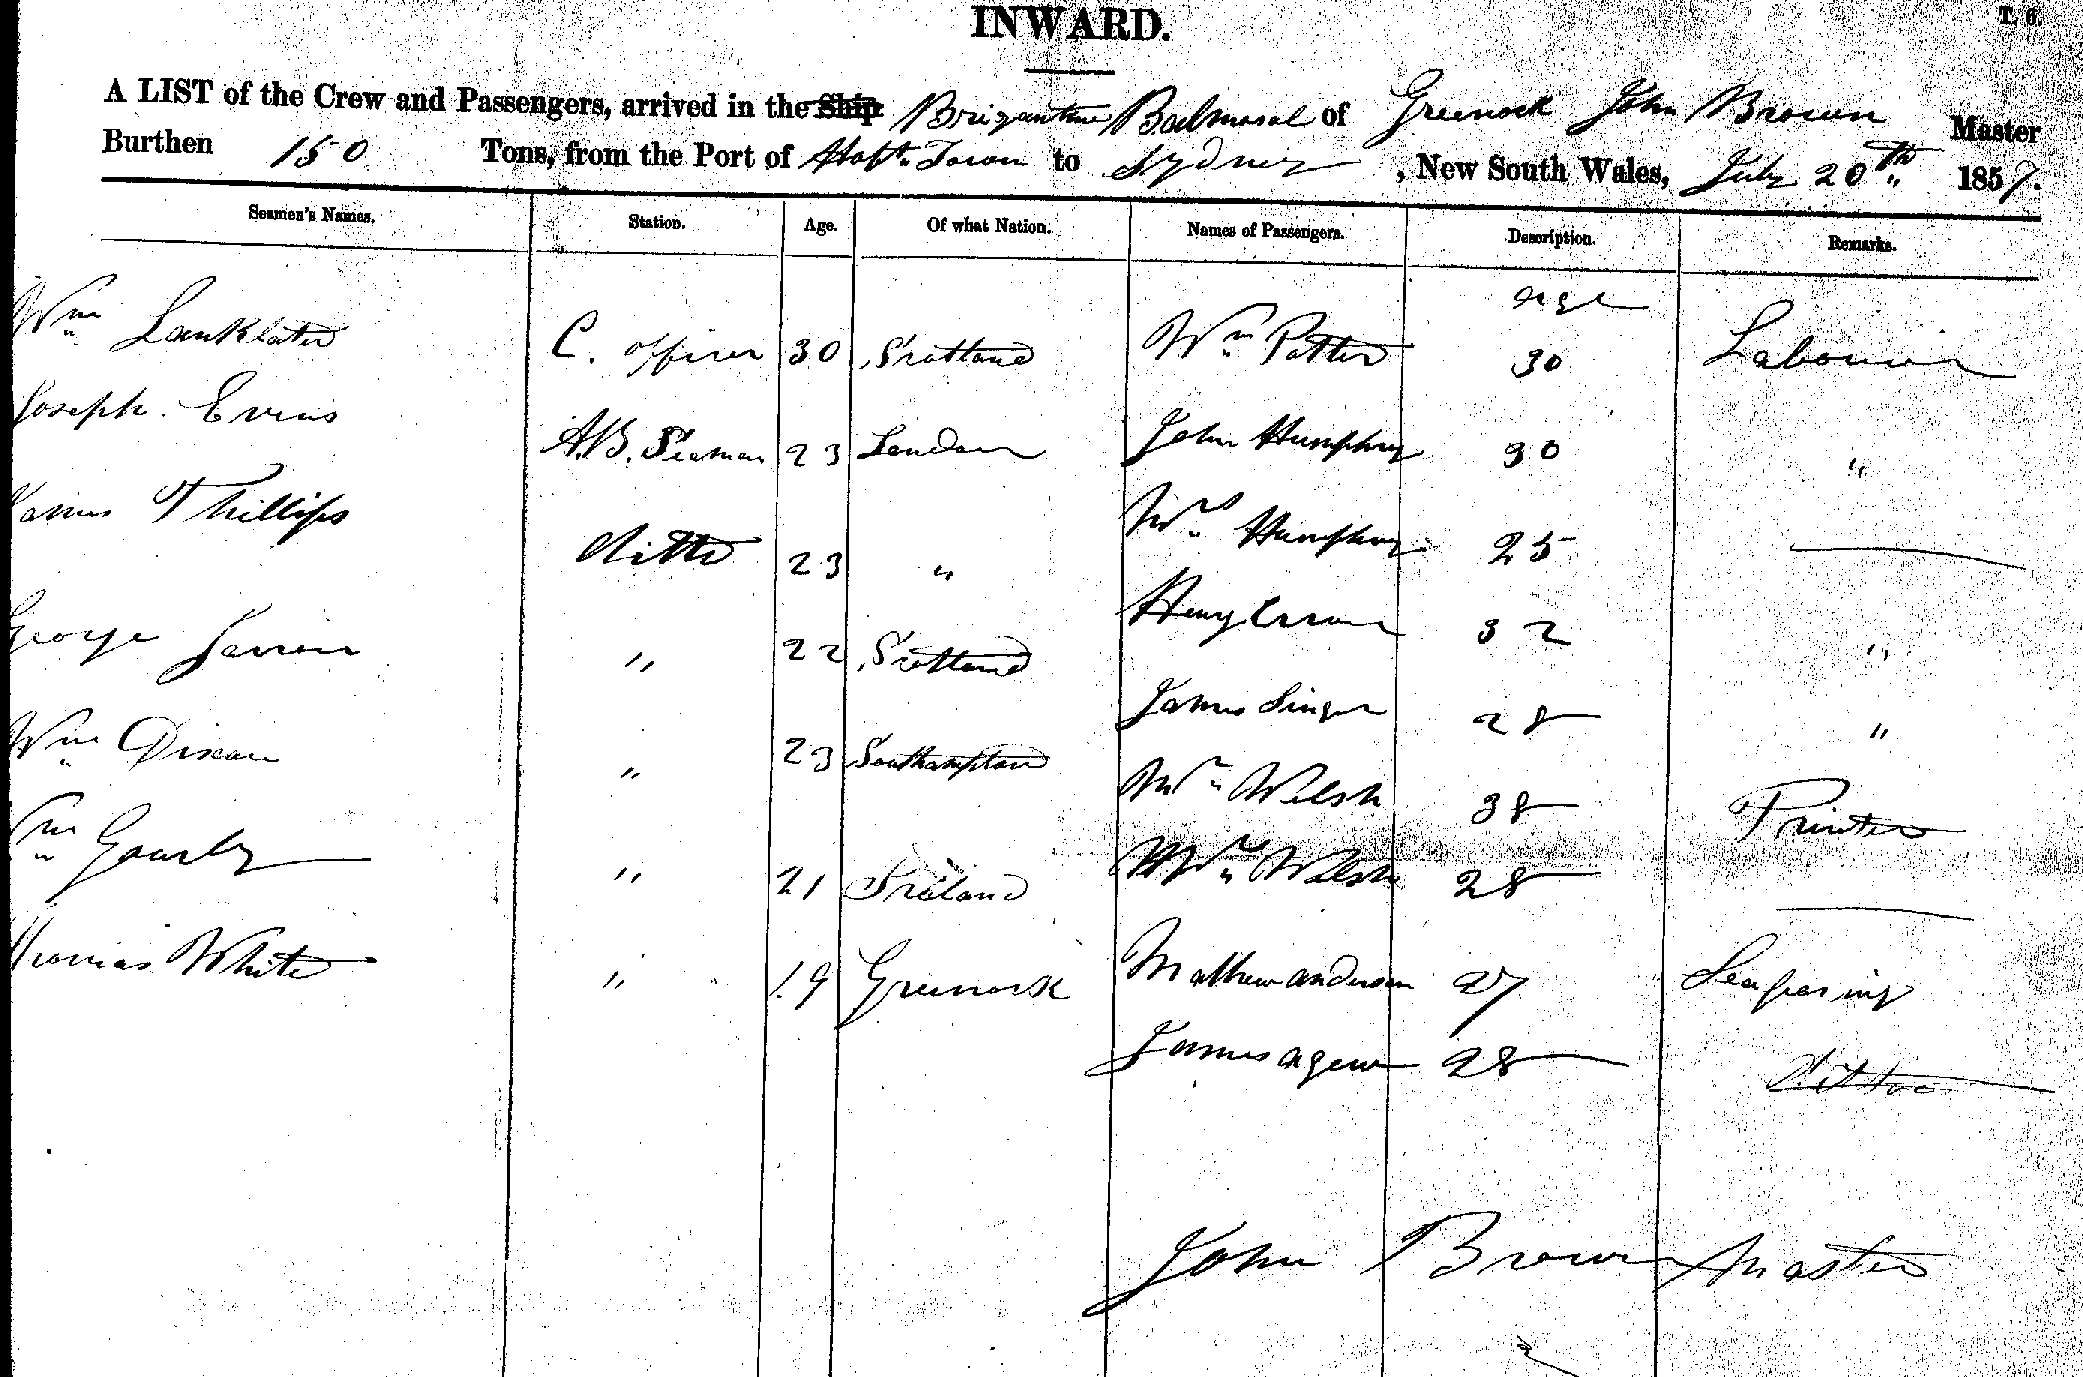 INWARD.
T. 6.
A LIST of the Crew and Passengers, arrived in the Ship Brigantine Balmoral of Greenock John Brown Master
Burthen 150 Tons, from the Port of Hobt. Town to Sydney, New South Wales, July 20th 1857.
Seamen's Names. Station. Age. Of what Nation. Names of Passengers. Description. Remarks.
age
Wm Lanklater C. officer 30 Scotland Wm Potter 30 Labourer
Joseph Evens A.B. Seaman 23 London John Humphrey 30 "
James Phillips ditto 23 " Mrs Humphrey 25 —
George " 22 Scotland Henry 32 "
Wm Dixon " 23 Southampton James Singer 28 "
Mr Welsh 38 Printer
Wm Gourly " 21 Ireland Mrs Welsh 28 —
Thomas White " 19 Greenock Mathew anderson 27 Seafaring
James agew 28 dittoo
John Brown Master